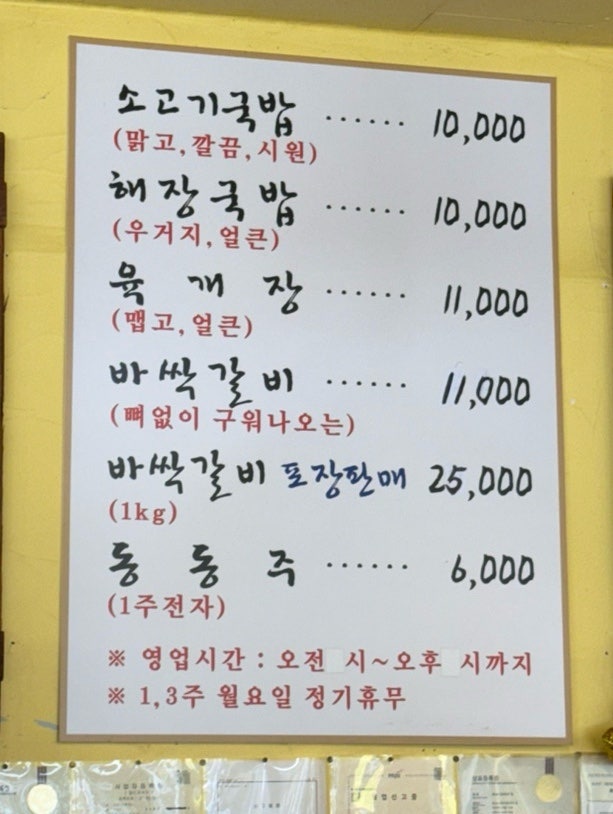 소고기국밥 ...... 10,000
(맑고,깔끔,시원)
해장국밥 ...... 10,000
(우거지,얼큰)
육개장 ...... 11,000
(맵고,얼큰)
바싹갈비 ...... 11,000
(뼈없이 구워나오는)
바싹갈비 포장판매 25,000
(1kg)
동동주 ...... 6,000
(1주전자)
※ 영업시간 : 오전 시~오후 시까지
※ 1,3주 월요일 정기휴무